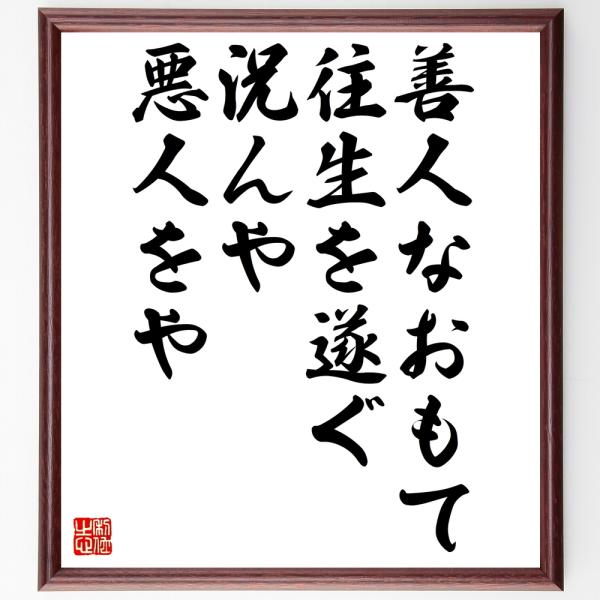 善人なおもて
往生を遂ぐ
況んや
悪人をや